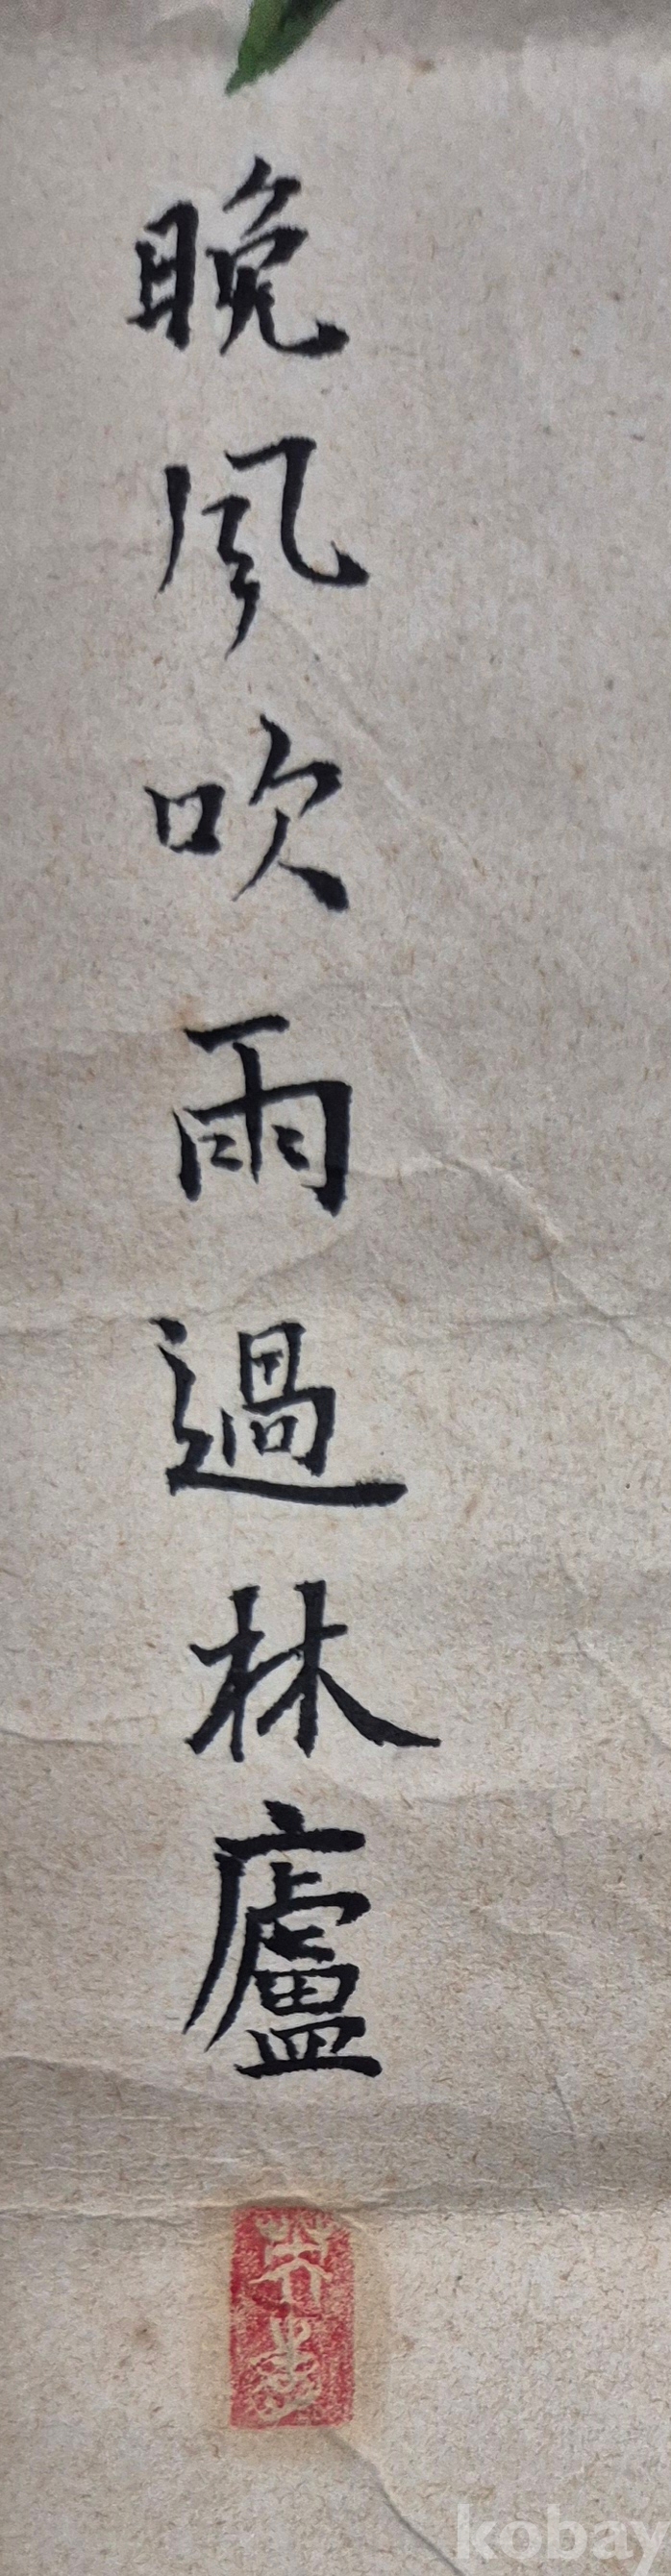 晚風吹雨過林廬
kobay